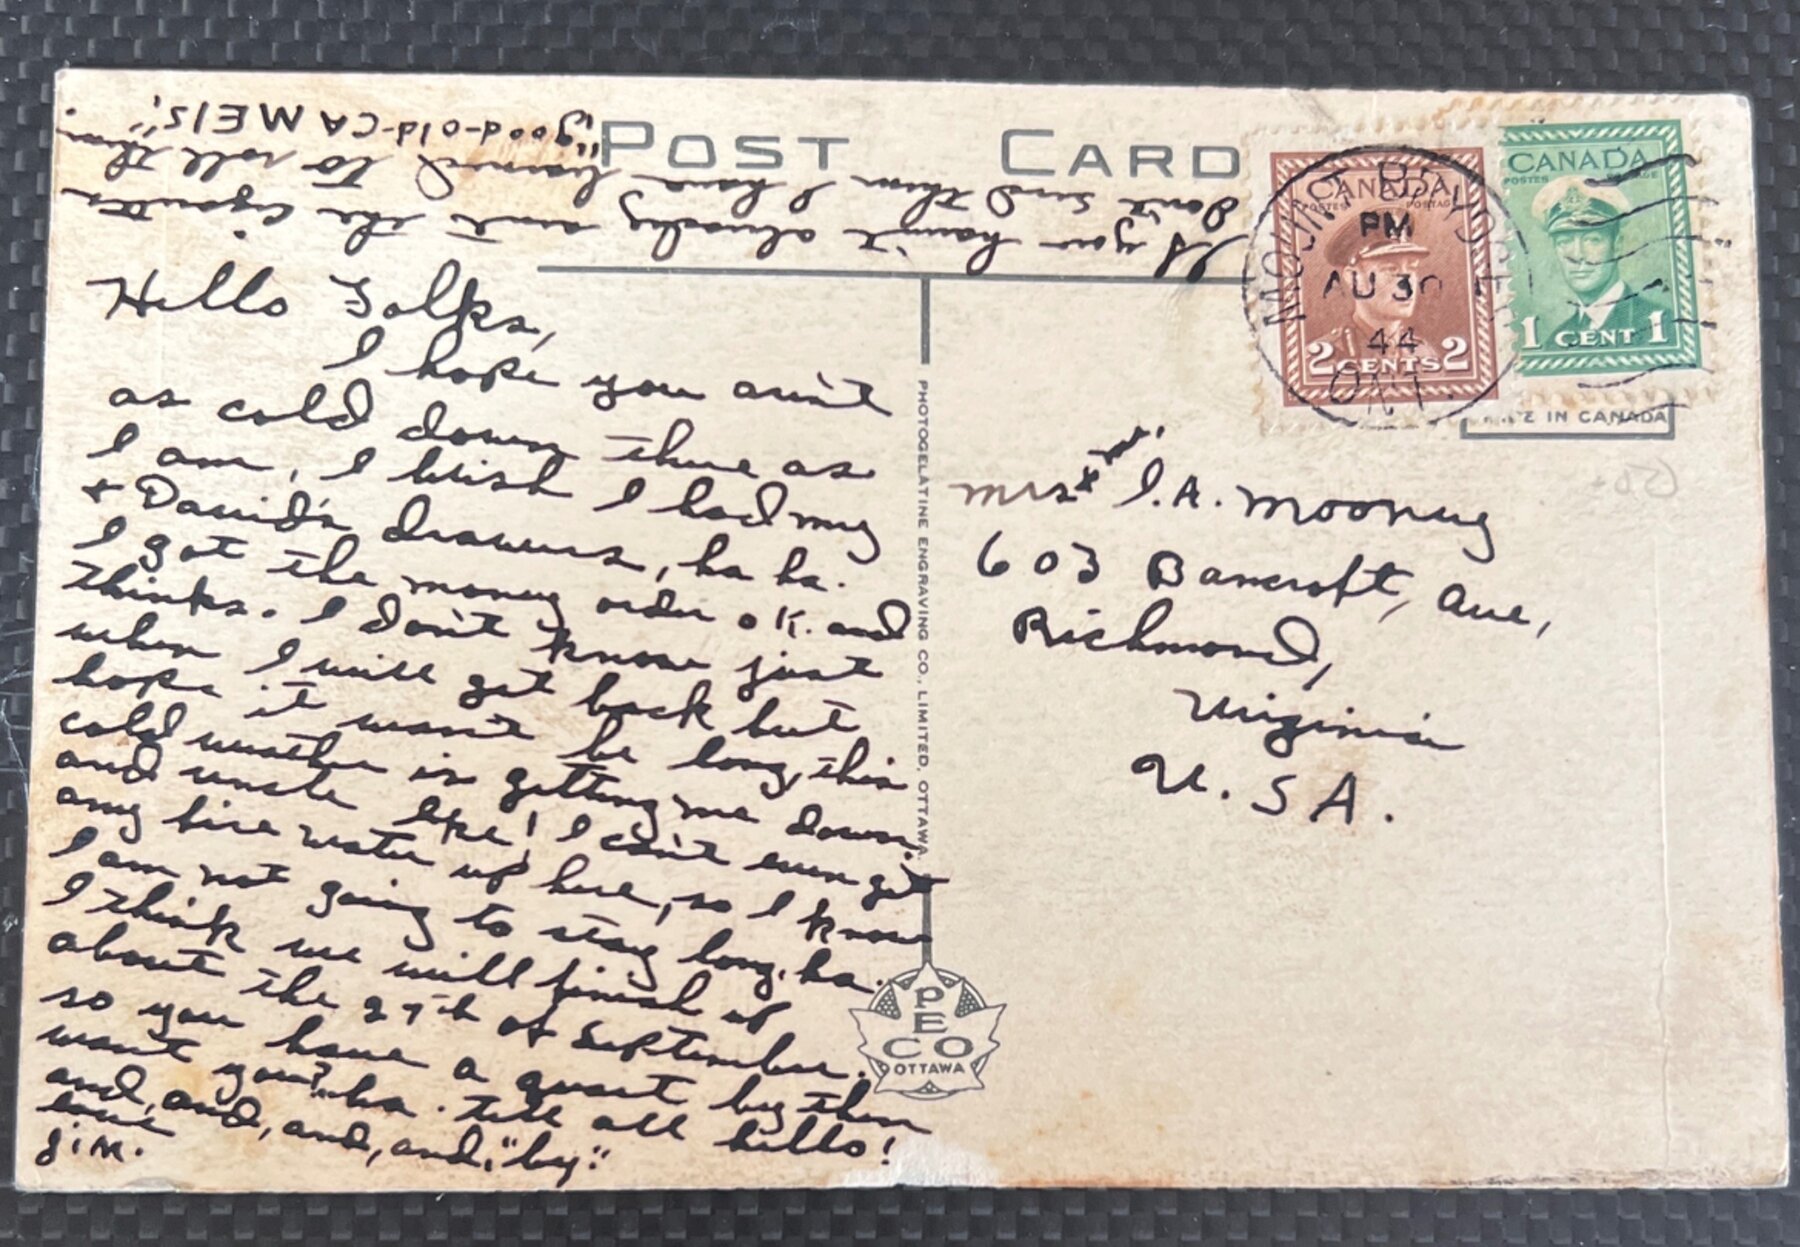 POST CARD
If you havn't already sent the cigarettes
don't send them I have learned to roll them.
"good-old-CAMELS"
Hello Folks,
I hope you ain't
as cold down there as
I am, I wish I had my
+ David's drawers, ha ha.
I got the money order O.K. and
thinks. I don't know just
when I will get back but
hope it wan't be long, this
cold weather is getting me down.
and uncle Epe! I can't even get
any fire water up here, so I know
I am not going to stay long, ha.
I think we will finish up
about the 27th of September.
so you have a quart by then
want you? ha. tell all hello!
and, and, and, and, "by."
love
Jim.
PHOTOGELATINE ENGRAVING CO., LIMITED, OTTAWA.
PECO
OTTAWA
CANADA
POSTES POSTAGE
2 CENTS 2
CANADA
POSTES POSTAGE
1 CENT 1
MOUNT BRYDGES
PM
AU 30
44
ONT.
IN CANADA
Mrs & Mr. J.A. Mooney
603 Bancroft, Ave,
Richmond,
Virginia
U.S.A.